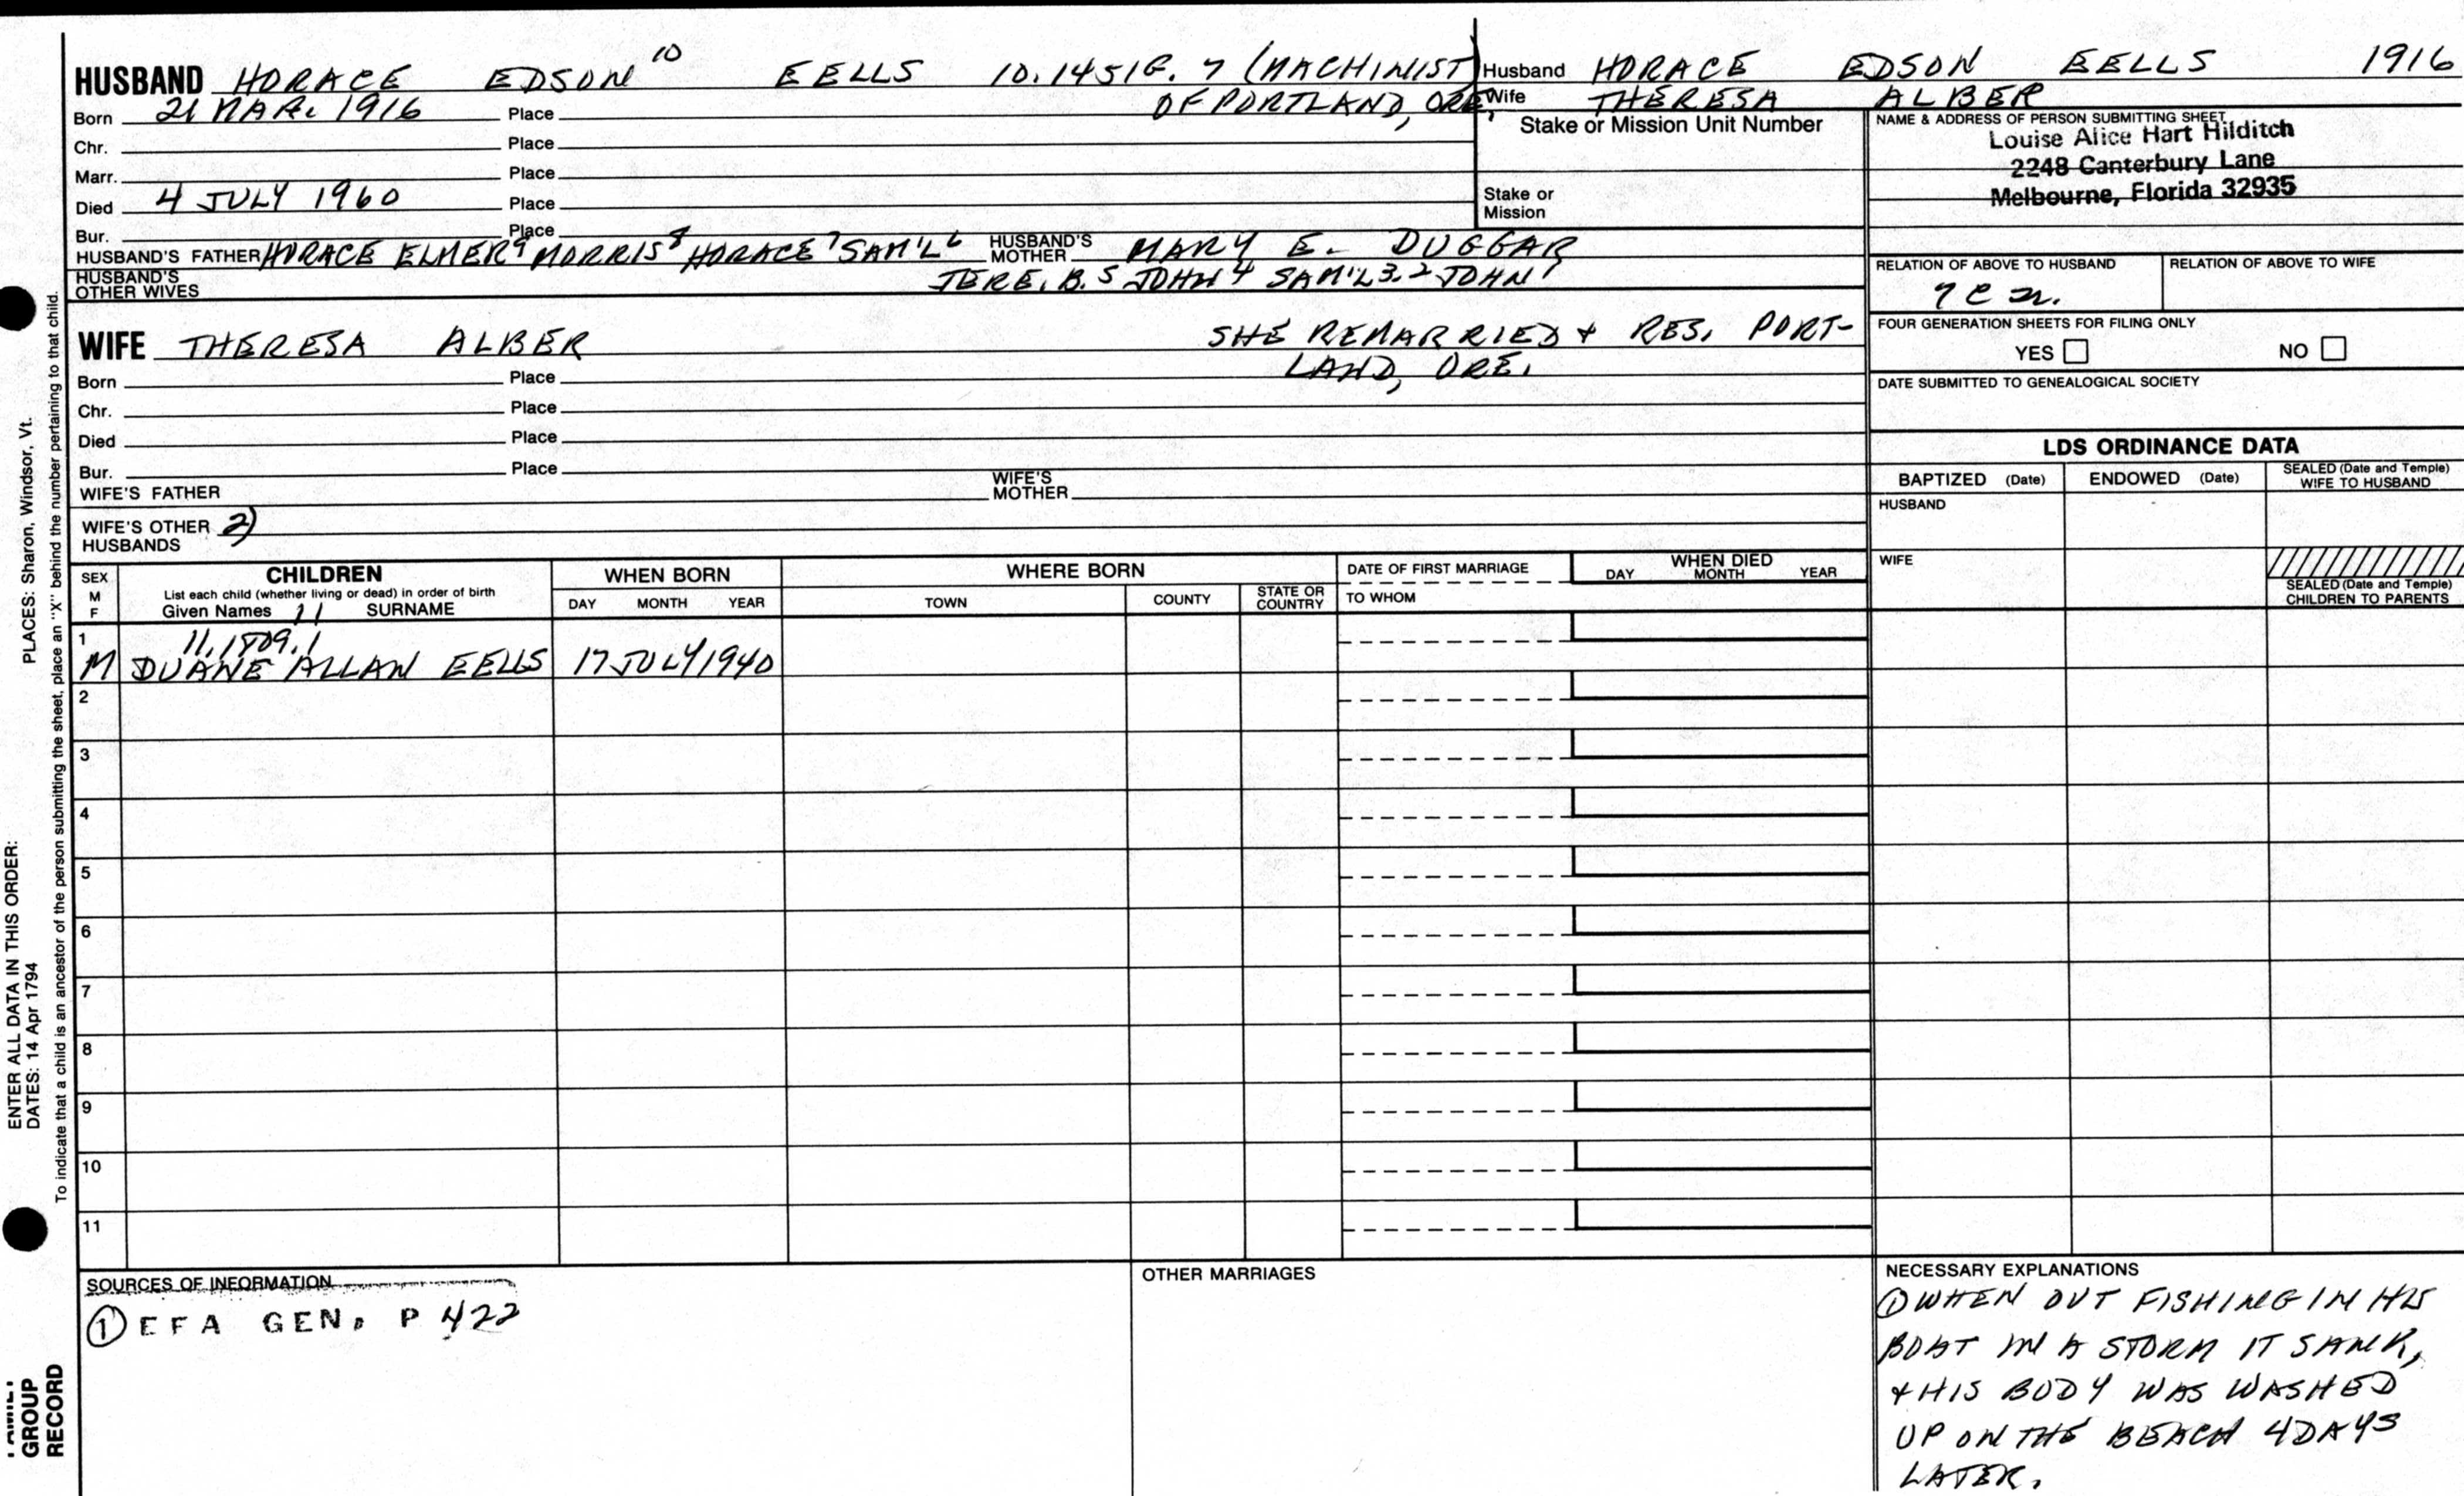 HUSBAND HORACE EDSON 10 EELLS 10.1451G. 7 (MACHINIST)
OF PORTLAND, ORE,
Born 21 MAR. 1916 Place
Chr. Place
Marr. Place
Died 4 JULY 1960 Place
Bur. Place
HUSBAND'S FATHER HORACE ELMER 9 MORRIS 8 HORACE 7 SAM'L 6 HUSBAND'S MOTHER MARY E. DUGGAR
HUSBAND'S OTHER WIVES JERE. B. 5 JOHN 4 SAM'L 3. 2 JOHN 1
WIFE THERESA ALBER SHE REMARRIED & RES. PORT-
LAND, ORE.
Born Place
Chr. Place
Died Place
Bur. Place
WIFE'S FATHER WIFE'S MOTHER
WIFE'S OTHER HUSBANDS 2)
Husband HORACE EDSON EELLS 1916
Wife THERESA ALBER
Stake or Mission Unit Number
Stake or
Mission
NAME & ADDRESS OF PERSON SUBMITTING SHEET
Louise Alice Hart Hilditch
2248 Canterbury Lane
Melbourne, Florida 32935
RELATION OF ABOVE TO HUSBAND RELATION OF ABOVE TO WIFE
FOUR GENERATION SHEETS FOR FILING ONLY
YES NO
DATE SUBMITTED TO GENEALOGICAL SOCIETY
LDS ORDINANCE DATA
BAPTIZED (Date) ENDOWED (Date) SEALED (Date and Temple) WIFE TO HUSBAND
HUSBAND
WIFE
SEALED (Date and Temple) CHILDREN TO PARENTS
SEX M F
CHILDREN
List each child (whether living or dead) in order of birth
Given Names 11 SURNAME
WHEN BORN
DAY MONTH YEAR
WHERE BORN
TOWN COUNTY STATE OR COUNTRY
DATE OF FIRST MARRIAGE
TO WHOM
WHEN DIED
DAY MONTH YEAR
1 11.1809.1
M DUANE ALLAN EELLS 17 JULY 1940
2
3
4
5
6
7
8
9
10
11
SOURCES OF INFORMATION
① EFA GEN. P 422
OTHER MARRIAGES
NECESSARY EXPLANATIONS
① WHEN OUT FISHING IN HIS
BOAT IN A STORM IT SANK,
& HIS BODY WAS WASHED
UP ON THE BEACH 4 DAYS
LATER.
ENTER ALL DATA IN THIS ORDER:
DATES: 14 Apr 1794 PLACES: Sharon, Windsor, Vt.
To indicate that a child is an ancestor of the person submitting the sheet, place an "X" behind the number pertaining to that child.
GROUP
RECORD